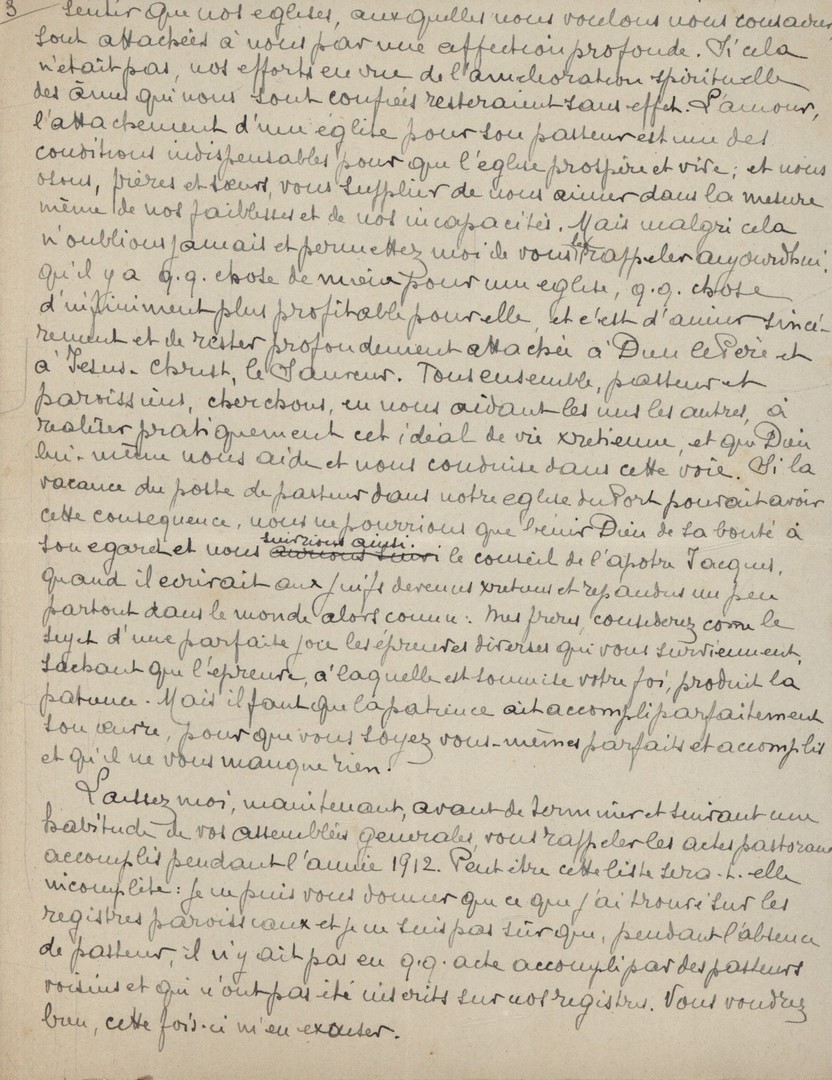 3
sentir que nos eglises, auxquelles nous voulons nous consacrer
sont attachées à nous par une affection profonde. Si cela
n'était pas, nos efforts en vue de l'amélioration spirituelle
des âmes qui nous sont confiées resteraient sans effet. L'amour,
l'attachement d'une église pour son pasteur est une des
conditions indispensables pour que l'église prospère et vive; et nous
osons, frères et sœurs, vous supplier de nous aimer dans la mesure
même de nos faiblesses et de nos incapacités. Mais malgré cela
n'oublions jamais et permettez moi de vous le rappeler aujourd'hui,
qu'il y a q.q. chose de mieux pour une eglise, q.q. chose
d'infiniment plus profitable pour elle, et c'est d'aimer sincè-
rement et de rester profondement attachée à Dieu le Père et
à Jesus-Christ, le Sauveur. Tous ensemble, pasteur et
paroissiens, cherchons, en nous aidant les uns les autres, à
realiser pratiquement cet idéal de vie xretienne, et que Dieu
lui-même nous aide et nous conduise dans cette voie. Si la
vacance du poste de pasteur dans notre eglise du Port pouvait avoir
cette consequence, nous ne pourrions que bénir Dieu de sa bonté à
son egard et nous suivrions ainsi. aurions suivi le conseil de l'apotre Jacques,
quand il ecrivait aux Juifs devenus xretiens et repandus un peu
partout dans le monde alors connu: Mes freres, considerez come le
sujet d'une parfaite joie les épreuves diverses qui vous surviennent,
sachant que l'epreuve, à laquelle est soumise votre foi, produit la
patience. Mais il faut que la patience ait accompli parfaitement
son œuvre, pour que vous soyez vous-mêmes parfaits et accomplis
et qu'il ne vous manque rien.
Laissez moi, maintenant, avant de terminer et suivant une
habitude de vos assemblées generales, vous rappeler les actes pastoraux
accomplis pendant l'année 1912. Peut être cette liste sera-t-elle
incomplète: je ne puis vous donner que ce que j'ai trouvé sur les
registres paroissiaux et je ne suis pas sûr que, pendant l'absence
de pasteur, il n'y ait pas eu q.q. acte accompli par des pasteurs
voisins et qui n'ont pas été inscrits sur nos registres. Vous voudrez
bien, cette fois-ci m'en excuser.